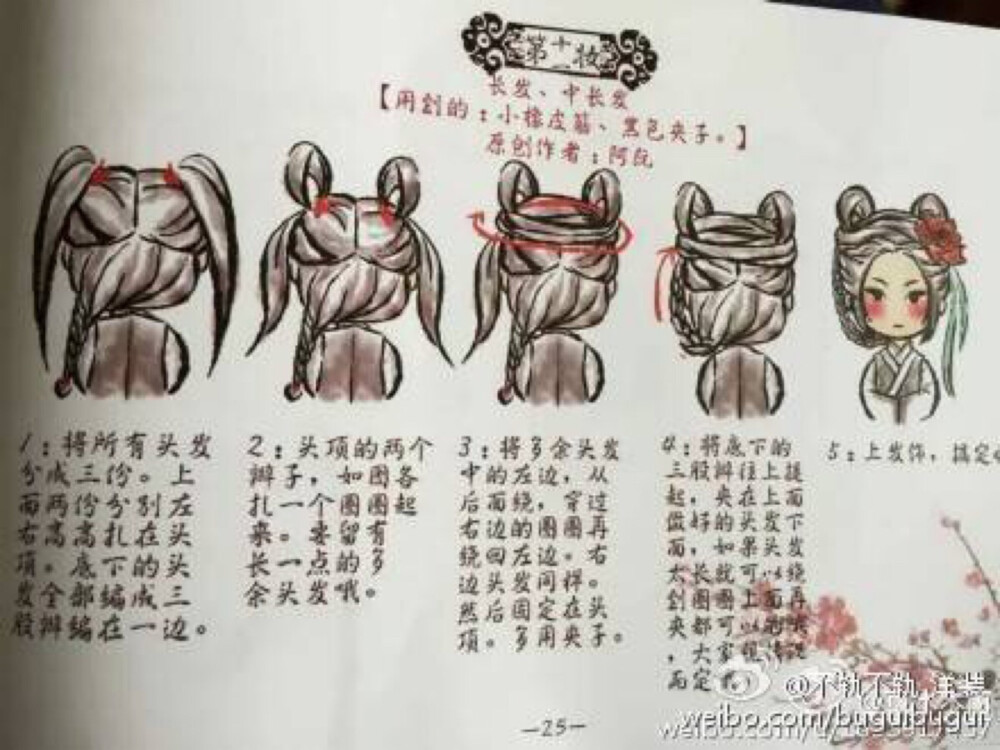 第十一妆
长发、中长发
【用到的：小橡皮筋、黑色夹子。】
原创作者：阿阮
1：将所有头发
分成三份。上
面两份分别左
右高高扎在头
顶。底下的头
发全部编成三
股辫编在一边。
2：头顶的两个
辫子，如图各
扎一个圈圈起
来。要留有
长一点的多
余头发哦。
3：将多余头发
中的左边，从
后面绕，穿过
右边的圈圈再
绕回左边。右
边头发同样。
然后固定在头
顶。多用夹子。
4：将底下的
三股辫往上提
起，夹在上面
做好的头发下
面，如果头发
太长就可以绕
到圈圈上面再
夹都可以的哦
，大家视情况
而定
5：上发饰，搞定
—25—
@不轨不轨洋装
weibo.com/buguibugui